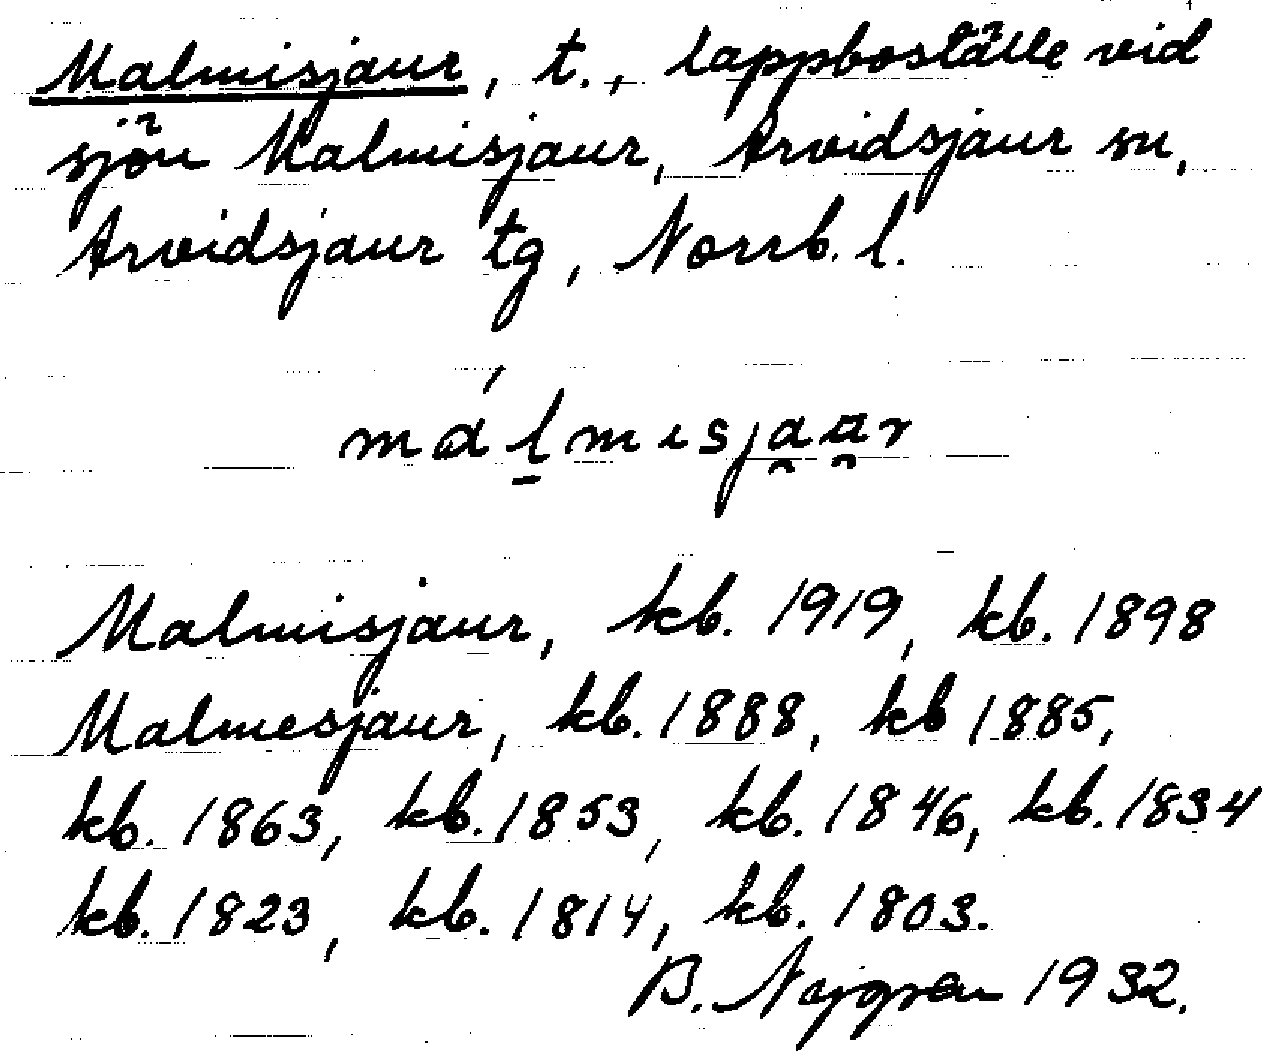 Malmisjaur, t., lappboställe vid
sjön Malmisjaur, Arvidsjaur sn,
Arvidsjaur tg, Norrb. l.
málmisjaar
Malmisjaur, kb. 1919, kb. 1898
Malmesjaur, kb. 1888, kb 1885,
kb. 1863, kb. 1853, kb. 1846, kb. 1834
kb. 1823, kb. 1814, kb. 1803.
B. Nygren 1932.